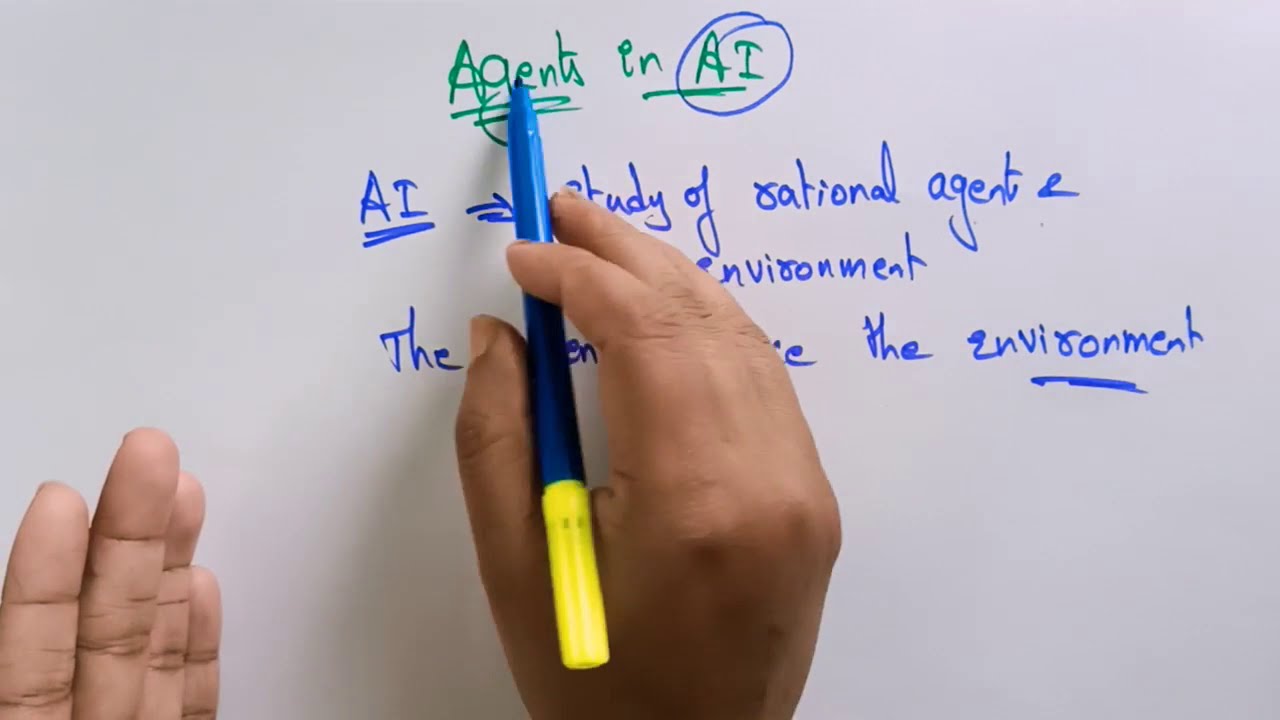 Agents in AI
AI ⇒ study of rational agent &
environment
The the environment